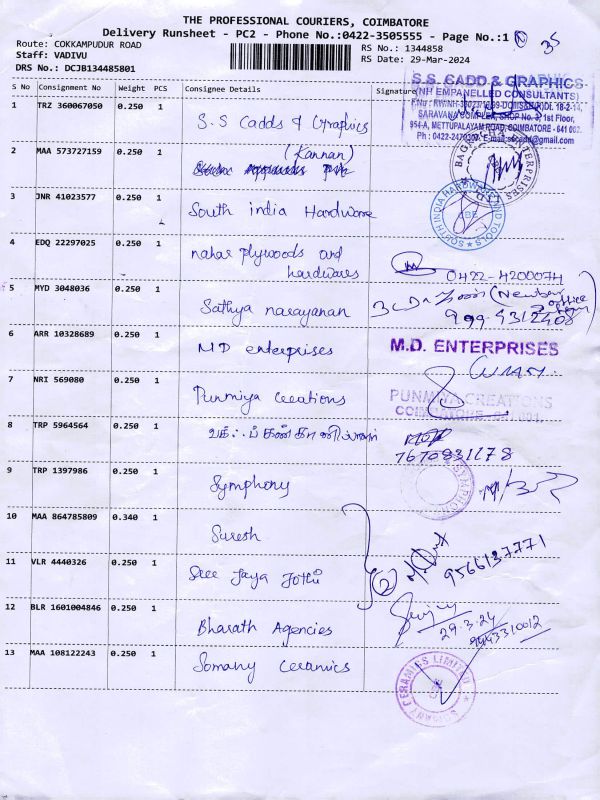 THE PROFESSIONAL COURIERS, COIMBATORE
Delivery Runsheet - PC2 - Phone No.:0422-3505555 - Page No.:1
35
Route: COKKAMPUDUR ROAD
Staff: VADIVU
DRS No.: DCJB134485801
RS No.: 1344858
RS Date: 29-Mar-2024
S No Consignment No Weight PCS Consignee Details Signature
1 TRZ 360067050 0.250 1 S.S Cadds & Graphics
S.S. CADD & GRAPHICS
(NH EMPANELLED CONSULTANTS)
SARAVANA COMPLEX, SHOP No. 3, 1st Floor,
954-A, METTUPALAYAM ROAD, COIMBATORE - 641 002.
2 MAA 573727159 0.250 1 (Kannan)
3 JNR 41023577 0.250 1 South india Hardware
SOUTH INDIA HARDWARE AND TOOLS
CBE
4 EDQ 22297025 0.250 1 nahar plywoods and
hardwares
0422-4200074
5 MYD 3048036 0.250 1 Sathya narayanan
6 ARR 10328689 0.250 1 MD enterprises
M.D. ENTERPRISES
7 NRI 569080 0.250 1 Punmiya creations
PUNMIYA CREATIONS
8 TRP 5964564 0.250 1
7670831178
9 TRP 1397986 0.250 1 Symphony
SYMPHONY
10 MAA 864785809 0.340 1 Suresh
2
9566137771
11 VLR 4440326 0.250 1 Sree Jaya Jothi
12 BLR 1601004846 0.250 1 Bharath Agencies
29.3.24
13 MAA 108122243 0.250 1 Somany ceramics
SOMANY CERAMICS LIMITED